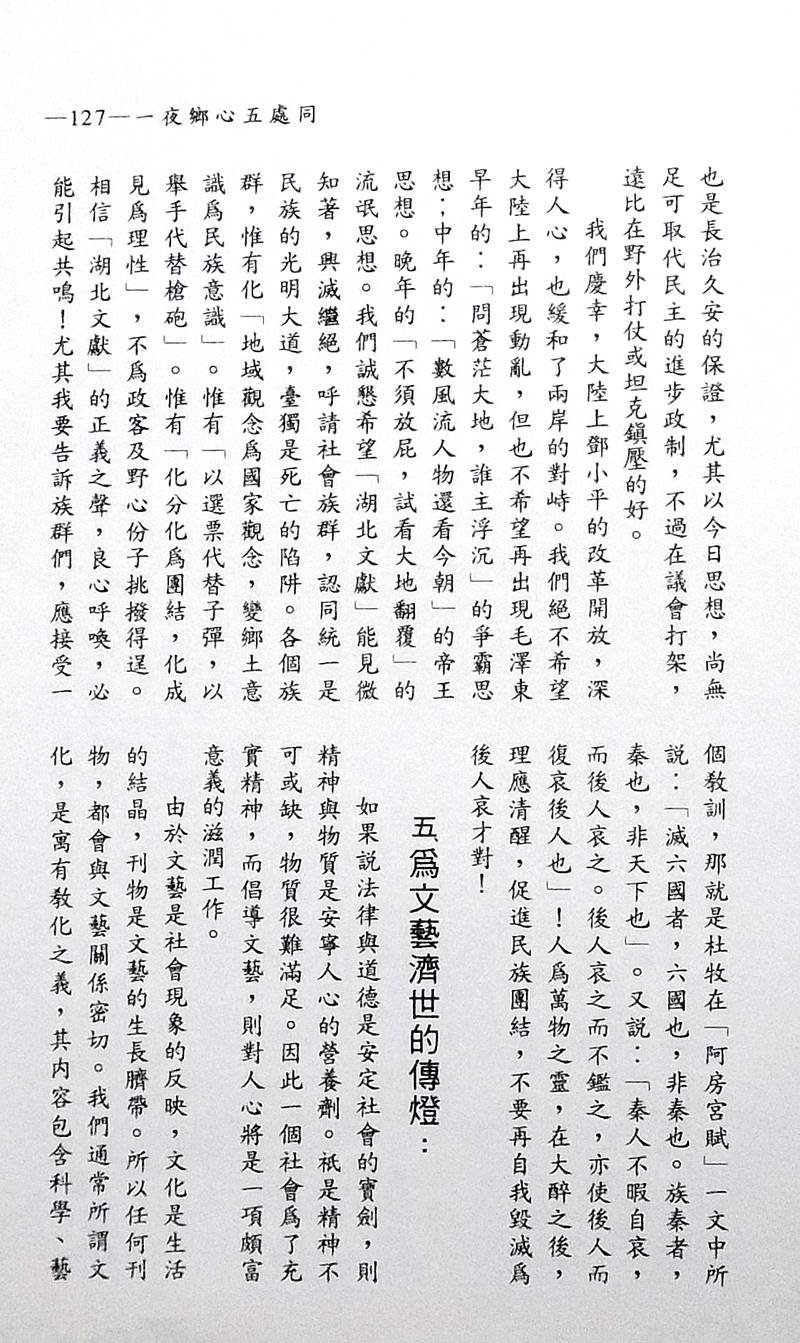 —127—一夜鄉心五處同
也是長治久安的保證，尤其以今日思想，尚無
足可取代民主的進步政制，不過在議會打架，
遠比在野外打仗或坦克鎮壓的好。
我們慶幸，大陸上鄧小平的改革開放，深
得人心，也緩和了兩岸的對峙。我們絕不希望
大陸上再出現動亂，但也不希望再出現毛澤東
早年的：「問蒼茫大地，誰主浮沉」的爭霸思
想；中年的：「數風流人物還看今朝」的帝王
思想。晚年的「不須放屁，試看大地翻覆」的
流氓思想。我們誠懇希望「湖北文獻」能見微
知著，興滅繼絕，呼請社會族群，認同統一是
民族的光明大道，臺獨是死亡的陷阱。各個族
群，惟有化「地域觀念爲國家觀念，變鄉土意
識爲民族意識」。惟有「以選票代替子彈，以
舉手代替槍砲」。惟有「化分化爲團結，化成
見爲理性」，不爲政客及野心份子挑撥得逞。
相信「湖北文獻」的正義之聲，良心呼喚，必
能引起共鳴！尤其我要告訴族群們，應接受一
個教訓，那就是杜牧在「阿房宮賦」一文中所
説：「滅六國者，六國也，非秦也。族秦者，
秦也，非天下也」。又説：「秦人不暇自哀，
而後人哀之。後人哀之而不鑑之，亦使後人而
復哀後人也」！人爲萬物之靈，在大醉之後，
理應清醒，促進民族團結，不要再自我毀滅爲
後人哀才對！
五、爲文藝濟世的傳燈：
如果説法律與道德是安定社會的寶劍，則
精神與物質是安寧人心的營養劑。祇是精神不
可或缺，物質很難滿足。因此一個社會爲了充
實精神，而倡導文藝，則對人心將是一項頗富
意義的滋潤工作。
由於文藝是社會現象的反映，文化是生活
的結晶，刊物是文藝的生長臍帶。所以任何刊
物，都會與文藝關係密切。我們通常所謂文
化，是寓有教化之義，其内容包含科學、藝